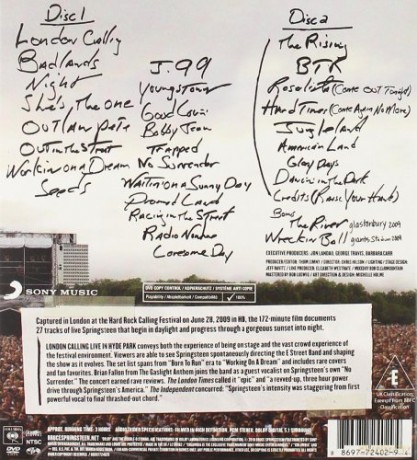 Disc 1
London Calling
Badlands
Night
She's The One
Outlaw Pete
Out in the Street
Workin on a Dream
Seeds
J. 99
Youngstown
Good Lovin
Bobby Jean
Trapped
No Surrender
Waitin on a Sunny Day
Promised Land
Racing in the Street
Radio Nowhere
Lonesome Day
Disc 2
The Rising
BTR
Rosalita (Come Out Tonight)
Hard Times (Come Again No More)
Jungleland
American Land
Glory Days
Dancin in the Dark
Credits (Raise Your Hand)
Bonus
The River glastonbury 2009
Wreckin Ball giants stadium 2009
EXECUTIVE PRODUCERS: JON LANDAU, GEORGE TRAVIS, BARBARA CARR
SONY MUSIC
DVD COPY CONTROL
Captured in London at the Hard Rock Calling Festival on June 28, 2009 in HD, the 172-minute film documents
27 tracks of live Springsteen that begin in daylight and progress through a gorgeous sunset into night.
LONDON CALLING: LIVE IN HYDE PARK conveys both the experience of being on stage and the vast crowd experience
of the festival environment. Viewers are able to see Springsteen spontaneously directing the E Street Band and shaping
the show as it evolves. The set list spans from "Born To Run" era to "Working On A Dream" and includes rare covers
and fan favorites. Brian Fallon from The Gaslight Anthem joins the band as a guest vocalist on Springsteen's own "No
Surrender." The concert earned rave reviews. The London Times called it "epic" and "a revved-up, three hour power
drive through Springsteen's America." The Independent concurred: "Springsteen's intensity was staggering from first
powerful vocal to final thrashed chord."
E
NTSC
DVD
8697-72402-9